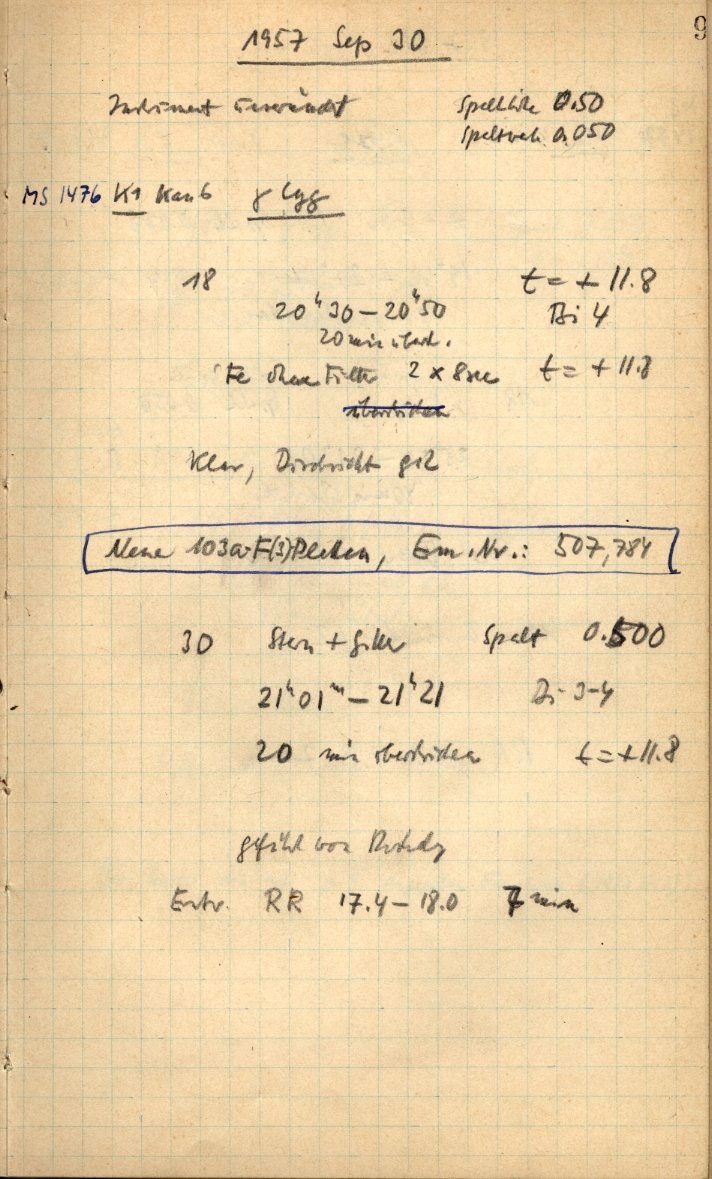 9
1957 Sep 30
Instrument unverändert Spalthöhe 0.50
Spaltweite 0.050
MS 1476 K1 Kau6 γ Cyg
18 t = + 11.8
20ʰ30 – 20ʰ50 Di 4
20 min überstr.
Fe ohne Filter 2 x 8sec t = + 11.8
überstrichen
Klar, Durchsicht gut
Neue 103a-F(3)Platten, Em.Nr.: 507,784
30 Stern + Gitter Spalt 0.500
21ʰ01ᵐ – 21ʰ21 Di 3-4
20 min überstrichen t = + 11.8
geführt von
Entw. RR 17.4 – 18.0 7 min